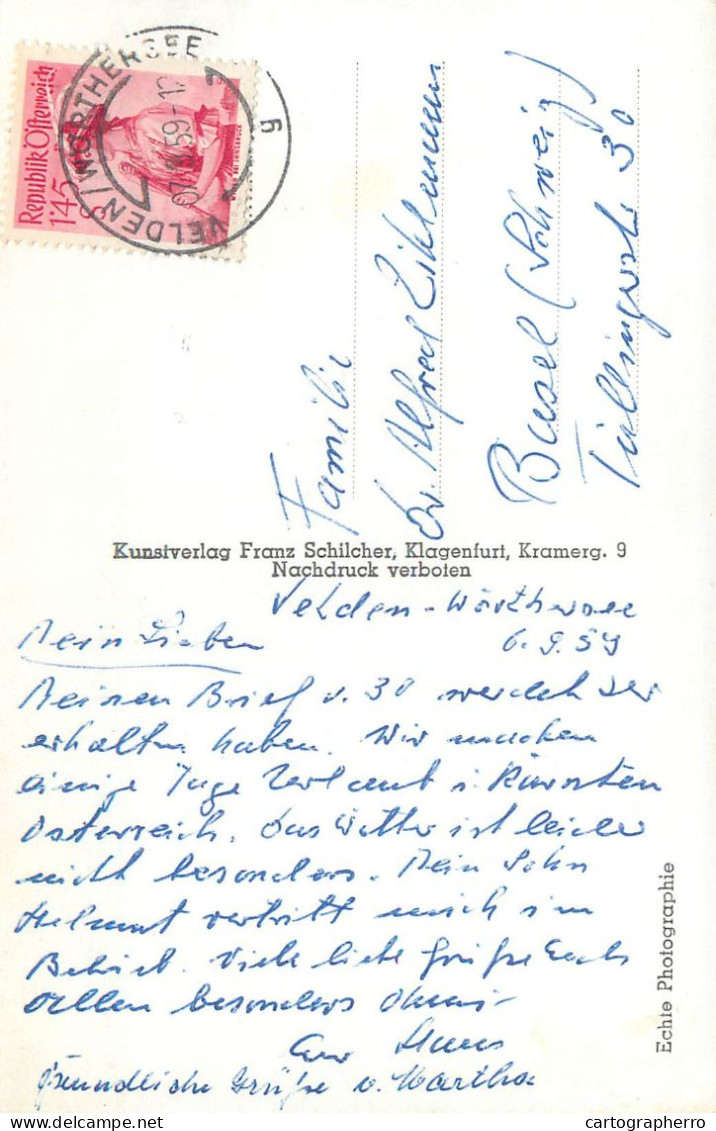 Republik Österreich
1'45
VELDEN/WÖRTHERSEE
59-12
6
Familie
Dr. Alfred
Basel (Schweiz)
Tüllingerstr. 30
Kunstverlag Franz Schilcher, Klagenfurt, Kramerg. 9
Nachdruck verboten
Echte Photographie
Velden - Wörthersee
6.9.59
Mein Lieben
Meinen Brief v. 30 werdet Ihr
erhalten haben. Wir machen
einige Tage Urlaub i. Kärnten
Österreich. Das Wetter ist leider
nicht besonders. Mein Sohn
Helmut vertritt mich im
Betrieb. Viele liebe Grüße Euch
allen besonders
Euer Hans
Freundliche Grüße v. Martha
cartographerro